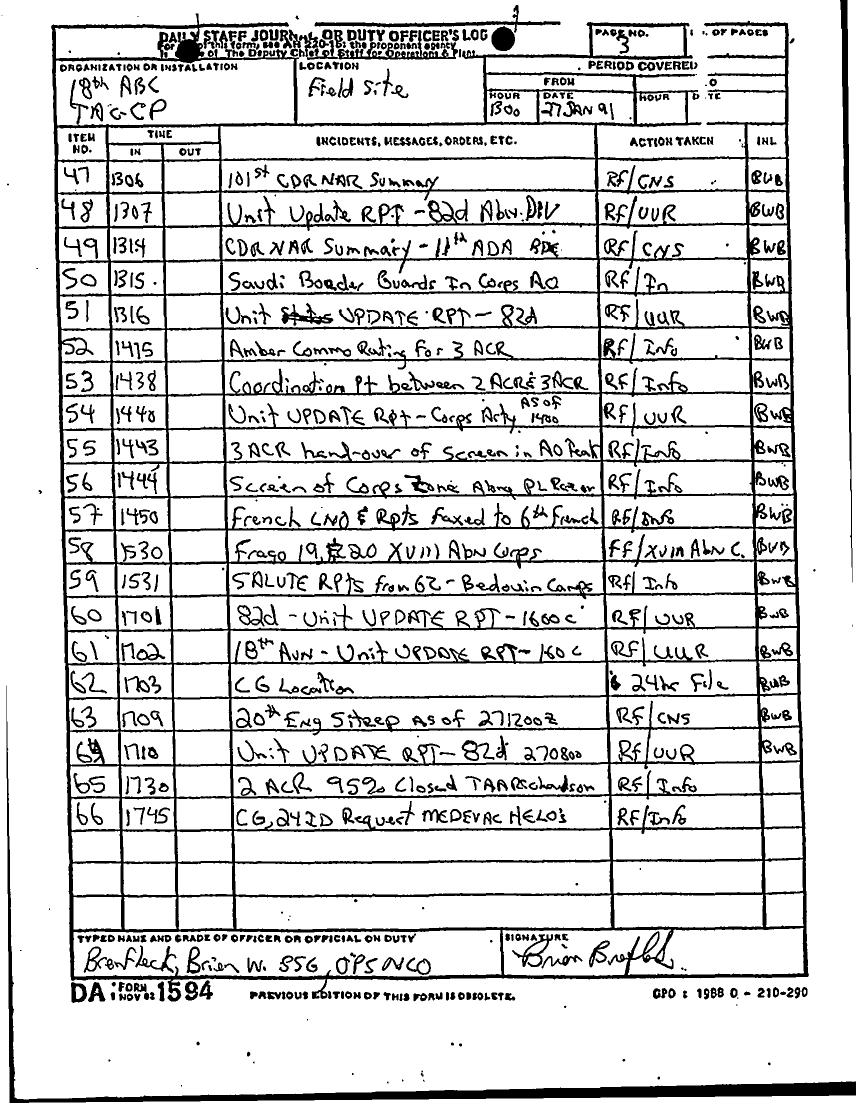 DAILY STAFF JOURNAL OR DUTY OFFICER'S LOG
For of this form, see AR 220-15; the proponent agency
is of The Deputy Chief of Staff for Operations & Plans
PAGE NO.
3
OF PAGES
ORGANIZATION OR INSTALLATION
18th ABC
TAC-CP
LOCATION
Field Site
PERIOD COVERED
FROM
HOUR
1300
DATE
27 JAN 91
HOUR
ITEM NO. TIME IN OUT INCIDENTS, MESSAGES, ORDERS, ETC. ACTION TAKEN INL
47 1306 101st CDR NAR Summary RF/CNS BWB
48 1307 Unit Update RPT - 82d Abn. DIV RF/UUR BWB
49 1314 CDR NAR Summary - 11th ADA BDE RF/CNS BWB
50 1315 Saudi Boarder Guards In Corps AO RF/In BWB
51 1316 Unit Status UPDATE RPT - 82d RF/UUR BWB
52 1415 Amber Commo Rating For 3 ACR RF/Info BWB
53 1438 Coordination Pt between 2 ACR & 3ACR RF/Info BWB
54 1440 Unit UPDATE Rpt - Corps Acty AS OF 1400 RF/UUR BWB
55 1443 3 ACR hand-over of Screen in AO Peak RF/Info BWB
56 1444 Screen of Corps Zone Along PL RF/Info BWB
57 1450 French LNO & Rpts faxed to 6th French RF/Info BWB
58 1530 Frago 19, & 20 XVIII Abn Corps FF/XVIII Abn C. BWB
59 1531 SALUTE RPTs from G2 - Bedouin Camps RF/Info BWB
60 1701 82d - Unit UPDATE RPT - 1600c RF/UUR BWB
61 1702 18th AVN - Unit UPDATE RPT - 160c RF/UUR BWB
62 1703 CG Location 24hr File BWB
63 1709 20th Eng Sitrep AS OF 271200Z RF/CNS BWB
64 1710 Unit UPDATE RPT - 82d 270800 RF/UUR BWB
65 1730 2 ACR 95% Closed TAA Richardson RF/Info
66 1745 CG, 24 ID Request MEDEVAC HELO's RF/Info
TYPED NAME AND GRADE OF OFFICER OR OFFICIAL ON DUTY
Brenfleck, Brian W. SSG, OPS NCO
SIGNATURE
Brian
DA FORM 1 NOV 62 1594 PREVIOUS EDITION OF THIS FORM IS OBSOLETE. GPO : 1988 O - 210-290